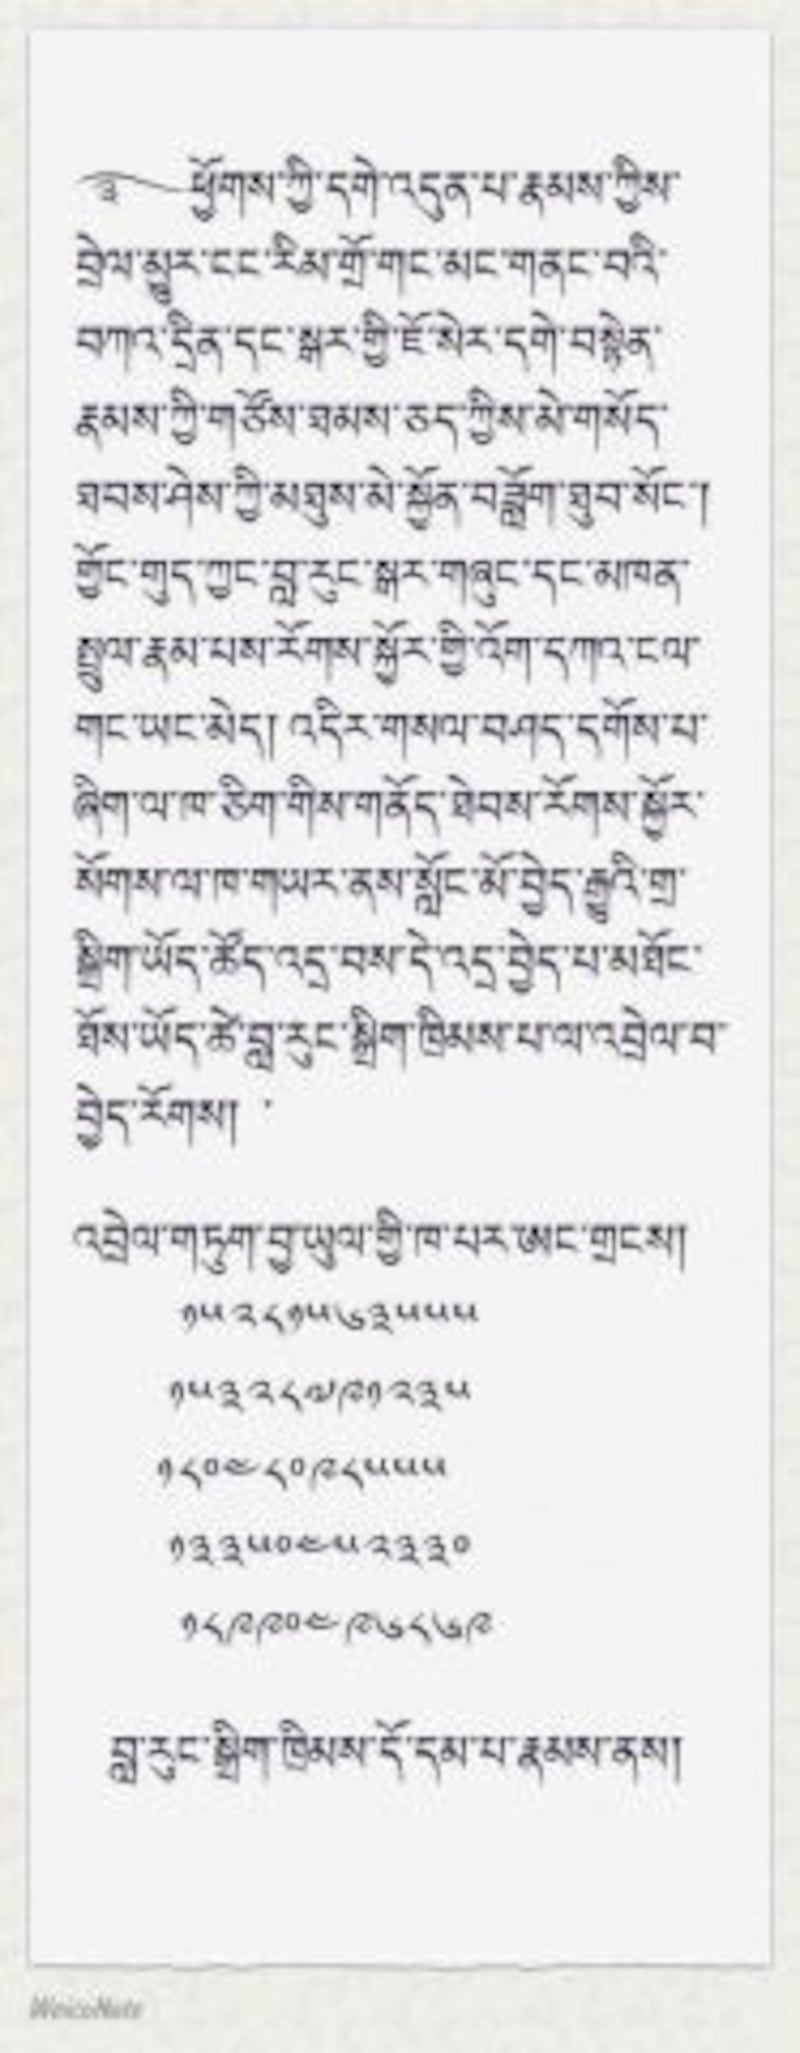 ༄ ཕྱོགས་ཀྱི་དགེ་འདུན་པ་རྣམས་ཀྱིས་
བྲེལ་མྱུར་ངང་རིམ་གྲོ་གང་མང་གནང་བའི་
བཀའ་དྲིན་དང་སྒར་གྱི་ཇོ་སེར་དགེ་བསྙེན་
རྣམས་ཀྱི་གཙོས་ཐམས་ཅད་ཀྱིས་མེ་གསོད་
ཐབས་ཤེས་ཀྱི་མཐུས་མེ་སྐྱོན་བཟློག་ཐུབ་སོང་།
གྱོང་གུད་ཀྱང་བླ་རུང་སྒར་གཞུང་དང་མཁན་
སྤྲུལ་རྣམ་པས་རོགས་སྐྱོར་གྱི་འོག་དཀའ་ངལ་
གང་ཡང་མེད། འདིར་གསལ་བཤད་དགོས་པ་
ཞིག་ལ་ཁ་ཅིག་གིས་གནོད་ཐེབས་རོགས་སྐྱོར་
སོགས་ལ་ཁ་གཡར་ནས་སློང་མོ་བྱེད་རྒྱུའི་གྲ་
སྒྲིག་ཡོད་ཚོད་འདྲ་བས་དེ་འདྲ་བྱེད་པ་མཐོང་
ཐོས་ཡོད་ཚེ་བླ་རུང་སྒྲིག་ཁྲིམས་པ་ལ་འབྲེལ་བ་
བྱེད་རོགས། ་
འབྲེལ་གཏུག་བྱ་ཡུལ་གྱི་ཁ་པར་ཨང་གྲངས།
༡༥༢༨༡༥༦༣༥༥༥
༡༥༣༢༨༧༩༡༢༣༥
༡༨༠༤༨༠༩༨༥༥༥
༡༣༣༥༠༤༥༢༣༣༠
༡༨༩༩༠༤༩༦༨༦༩
བླ་རུང་སྒྲིག་ཁྲིམས་དོ་དམ་པ་རྣམས་ནས།
WeicoNote